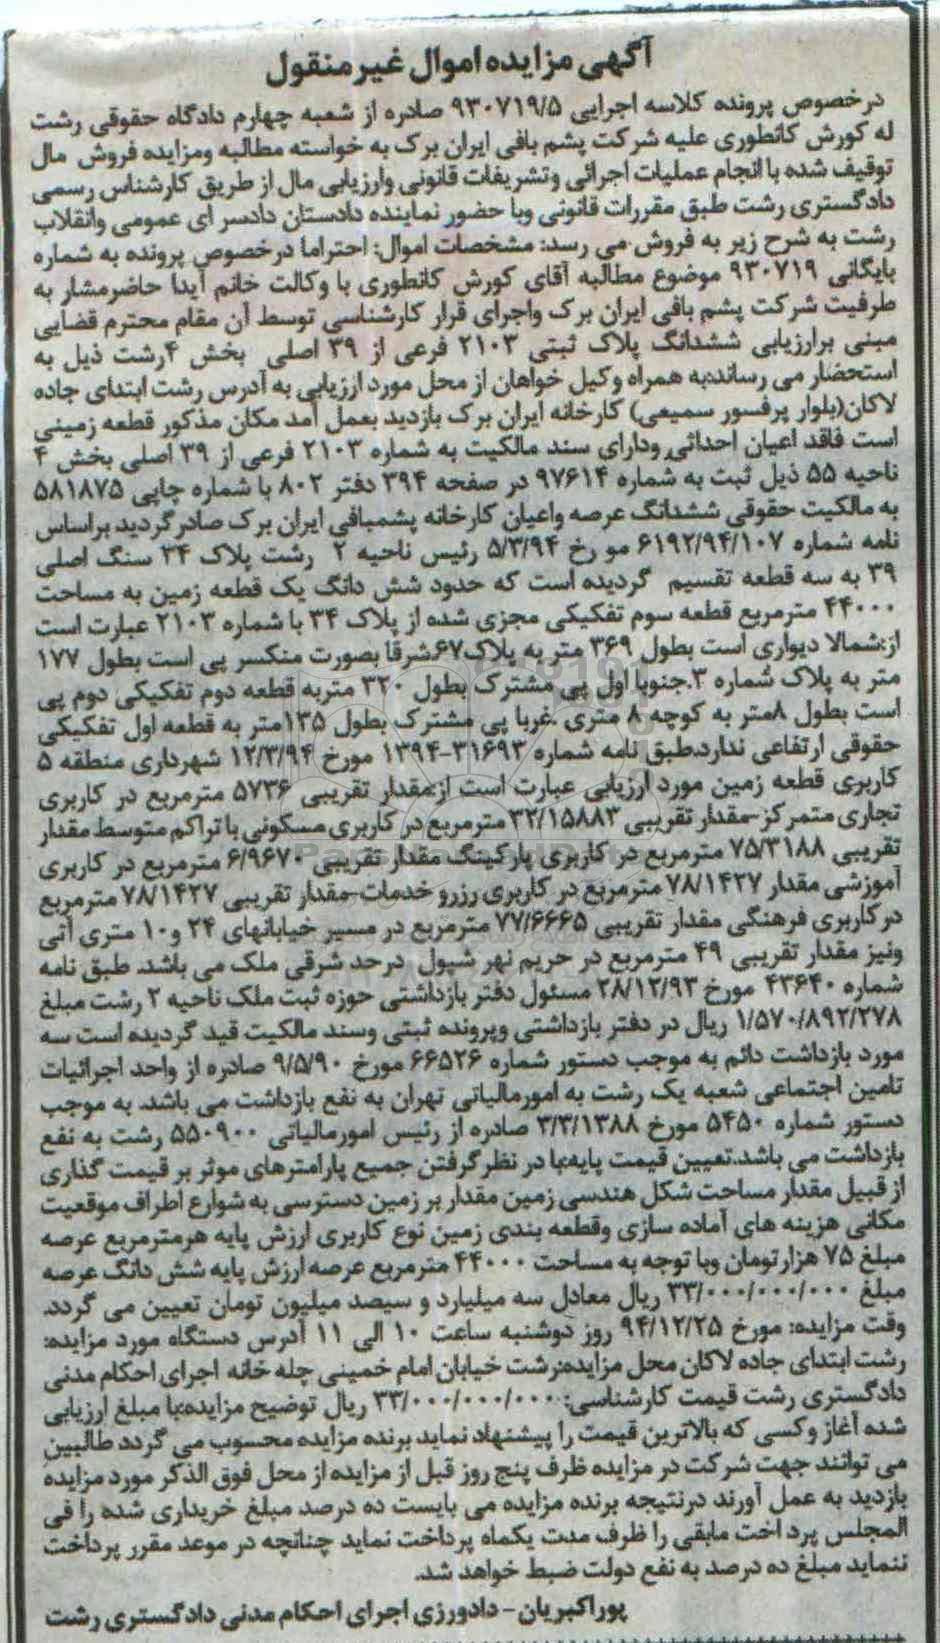 آگهی مزایده اموال غیر منقول
درخصوص پرونده کلاسه اجرایی ۹۳۰۷۱۹/۵ صادره از شعبه چهارم دادگاه حقوقی رشت
له کورش کانطوری علیه شرکت پشم بافی ایران برک به خواسته مطالبه ومزایده فروش مال
توقیف شده با انجام عملیات اجرائی وتشریفات قانونی وارزیابی مال از طریق کارشناس رسمی
دادگستری رشت طبق مقررات قانونی وبا حضور نماینده دادستان دادسر ای عمومی وانقلاب
رشت به شرح زیر به فروش می رسد: مشخصات اموال: احتراما درخصوص پرونده به شماره
بایگانی ۹۳۰۷۱۹ موضوع مطالبه آقای کورش کانطوری با وکالت خانم آیدا حاضرمشار به
طرفیت شرکت پشم بافی ایران برک واجرای قرار کارشناسی توسط آن مقام محترم قضایی
مبنی برارزیابی ششدانگ پلاک ثبتی ۲۱۰۳ فرعی از ۳۹ اصلی بخش ۴رشت ذیل به
استحضار می رساند:به همراه وکیل خواهان از محل مورد ارزیابی به آدرس رشت ابتدای جاده
لاکان(بلوار پرفسور سمیعی) کارخانه ایران برک بازدید بعمل آمد مکان مذکور قطعه زمینی
است فاقد اعیان احداثی ودارای سند مالکیت به شماره ۲۱۰۳ فرعی از ۳۹ اصلی بخش ۴
ناحیه ۵۵ ذیل ثبت به شماره ۹۷۶۱۴ در صفحه ۳۹۴ دفتر ۸۰۲ با شماره چاپی ۵۸۱۸۷۵
به مالکیت حقوقی ششدانگ عرصه واعیان کارخانه پشمبافی ایران برک صادرگردید براساس
نامه شماره ۶۱۹۲/۹۴/۱۰۷ مو رخ ۵/۳/۹۴ رئیس ناحیه ۲ رشت پلاک ۳۴ سنگ اصلی
۳۹ به سه قطعه تقسیم گردیده است که حدود شش دانگ یک قطعه زمین به مساحت
۴۴۰۰۰ مترمربع قطعه سوم تفکیکی مجزی شده از پلاک ۳۴ با شماره ۲۱۰۳ عبارت است
از:شمالا دیواری است بطول ۳۶۹ متر به پلاک۶۷.شرقا بصورت منکسر پی است بطول ۱۷۷
متر به پلاک شماره ۳.جنوبا اول پی مشترک بطول ۳۲۰ متربه قطعه دوم تفکیکی دوم پی
است بطول ۸متر به کوچه ۸ متری .غربا پی مشترک بطول ۱۳۵متر به قطعه اول تفکیکی
حقوقی ارتفاعی ندارد.طبق نامه شماره ۳۱۶۹۳-۱۳۹۴ مورخ ۱۲/۳/۹۴ شهرداری منطقه ۵
کاربری قطعه زمین مورد ارزیابی عبارت است از:مقدار تقریبی ۵۷۳۶ مترمربع در کاربری
تجاری متمرکز-مقدار تقریبی ۳۲/۱۵۸۸۳ مترمربع در کاربری مسکونی با تراکم متوسط مقدار
تقریبی ۷۵/۳۱۸۸ مترمربع در کاربری پارکینگ مقدار تقریبی ۶/۹۶۷۰ مترمربع در کاربری
آموزشی مقدار ۷۸/۱۴۲۷ مترمربع در کاربری رزرو خدمات-مقدار تقریبی ۷۸/۱۴۲۷ مترمربع
درکاربری فرهنگی مقدار تقریبی ۷۷/۶۶۶۵ مترمربع در مسیر خیابانهای ۲۴ و۱۰ متری آتی
ونیز مقدار تقریبی ۴۹ مترمربع در حریم نهر شپول درحد شرقی ملک می باشد. طبق نامه
شماره ۴۳۶۴۰ مورخ ۲۸/۱۲/۹۳ مسئول دفتر بازداشتی حوزه ثبت ملک ناحیه ۲ رشت مبلغ
۱/۵۷۰/۸۹۲/۲۷۸ ریال در دفتر بازداشتی وپرونده ثبتی وسند مالکیت قید گردیده است سه
مورد بازداشت دائم به موجب دستور شماره ۶۶۵۲۶ مورخ ۹/۵/۹۰ صادره از واحد اجرائیات
تامین اجتماعی شعبه یک رشت به امورمالیاتی تهران به نفع بازداشت می باشد. به موجب
دستور شماره ۵۴۵۰ مورخ ۳/۳/۱۳۸۸ صادره از رئیس امورمالیاتی ۵۵۰۹۰۰ رشت به نفع
بازداشت می باشد.تعیین قیمت پایه:با در نظرگرفتن جمیع پارامترهای موثر بر قیمت گذاری
از قبیل مقدار مساحت شکل هندسی زمین مقدار بر زمین دسترسی به شوارع اطراف موقعیت
مکانی هزینه های آماده سازی وقطعه بندی زمین نوع کاربری ارزش پایه هرمترمربع عرصه
مبلغ ۷۵ هزارتومان وبا توجه به مساحت ۴۴۰۰۰ مترمربع عرصه ارزش پایه شش دانگ عرصه
مبلغ ۳۳/۰۰۰/۰۰۰/۰۰۰ ریال معادل سه میلیارد و سیصد میلیون تومان تعیین می گردد.
وقت مزایده: مورخ ۹۴/۱۲/۲۵ روز دوشنبه ساعت ۱۰ الی ۱۱ آدرس دستگاه مورد مزایده:
رشت ابتدای جاده لاکان محل مزایده:رشت خیابان امام خمینی چله خانه اجرای احکام مدنی
دادگستری رشت قیمت کارشناسی: ۳۳/۰۰۰/۰۰۰/۰۰۰ ریال توضیح مزایده:با مبلغ ارزیابی
شده آغاز وکسی که بالاترین قیمت را پیشنهاد نماید برنده مزایده محسوب می گردد طالبین
می توانند جهت شرکت در مزایده ظرف پنج روز قبل از مزایده از محل فوق الذکر مورد مزایده
بازدید به عمل آورند درنتیجه برنده مزایده می بایست ده درصد مبلغ خریداری شده را فی
المجلس پرد اخت مابقی را ظرف مدت یکماه پرداخت نماید چنانچه در موعد مقرر پرداخت
ننماید مبلغ ده درصد به نفع دولت ضبط خواهد شد.
پوراکبریان - دادورزی اجرای احکام مدنی دادگستری رشت